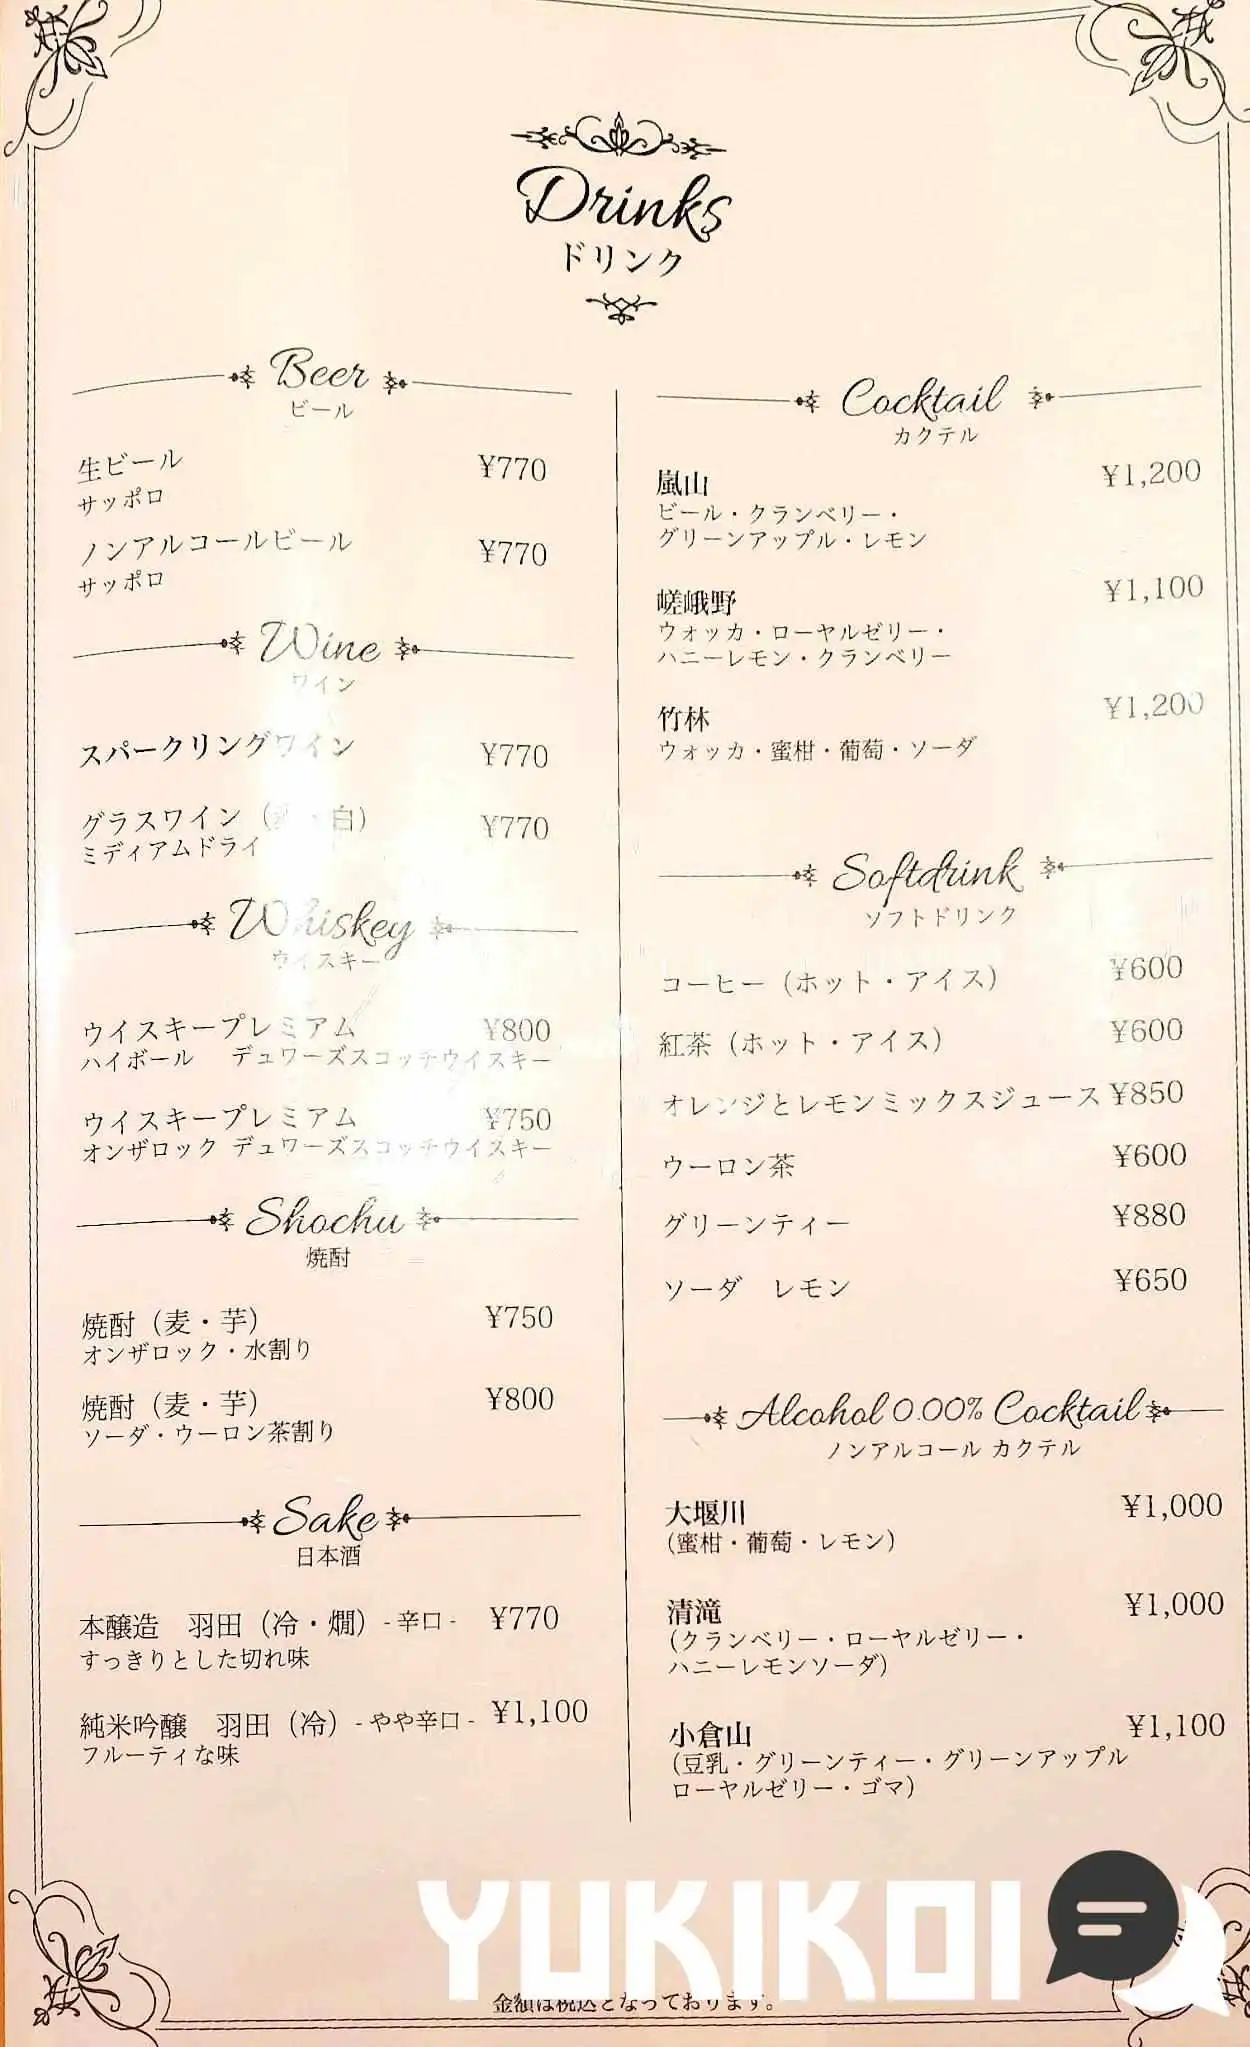 Drinks
ドリンク
Beer
ビール
生ビール ¥770
サッポロ
ノンアルコールビール ¥770
サッポロ
Wine
ワイン
スパークリングワイン ¥770
グラスワイン（赤・白） ¥770
ミディアムドライ
Whiskey
ウイスキー
ウイスキープレミアム ¥800
ハイボール デュワーズスコッチウイスキー
ウイスキープレミアム ¥750
オンザロック デュワーズスコッチウイスキー
Shochu
焼酎
焼酎（麦・芋） ¥750
オンザロック・水割り
焼酎（麦・芋） ¥800
ソーダ・ウーロン茶割り
Sake
日本酒
本醸造 羽田（冷・燗）- 辛口 - ¥770
すっきりとした切れ味
純米吟醸 羽田（冷）- やや辛口 - ¥1,100
フルーティな味
Cocktail
カクテル
嵐山 ¥1,200
ビール・クランベリー・
グリーンアップル・レモン
嵯峨野 ¥1,100
ウォッカ・ローヤルゼリー・
ハニーレモン・クランベリー
竹林 ¥1,200
ウォッカ・蜜柑・葡萄・ソーダ
Softdrink
ソフトドリンク
コーヒー（ホット・アイス） ¥600
紅茶（ホット・アイス） ¥600
オレンジとレモンミックスジュース ¥850
ウーロン茶 ¥600
グリーンティー ¥880
ソーダ レモン ¥650
Alcohol 0.00% Cocktail
ノンアルコール カクテル
大堰川 ¥1,000
（蜜柑・葡萄・レモン）
清滝 ¥1,000
（クランベリー・ローヤルゼリー・
ハニーレモンソーダ）
小倉山 ¥1,100
（豆乳・グリーンティー・グリーンアップル
ローヤルゼリー・ゴマ）
YUKIKOI
金額は税込となっております。